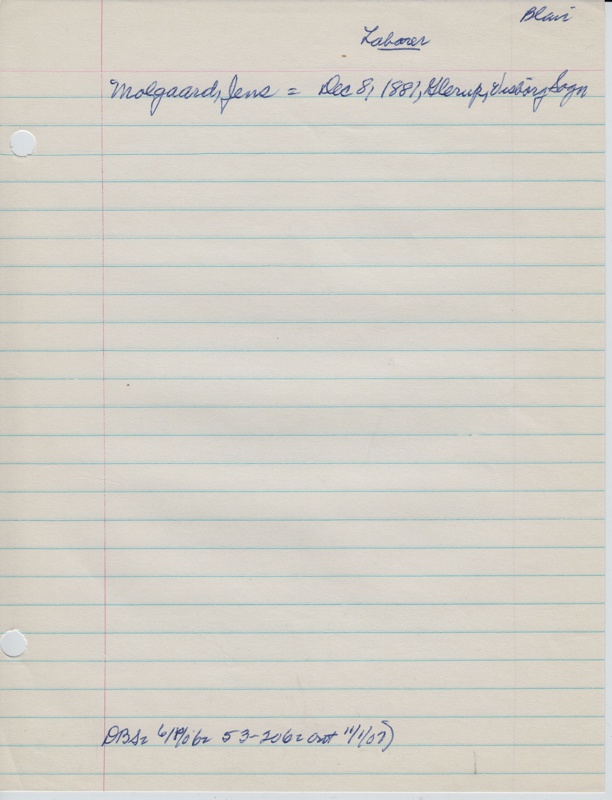 Blair
Laborer
Molgaard, Jens = Dec 8, 1881, Glerup, Visborg Sogn
DBS= 6/19/06= 53-206= out 11/1/07)